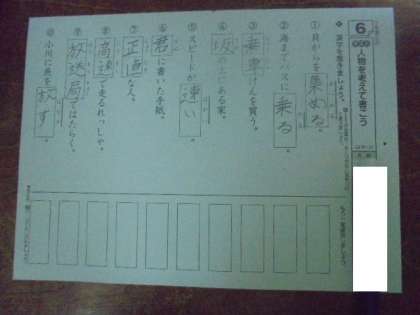 6 人物を考えて書こう
漢字を書きましょう。
① 貝がらを集める。
② 海までバスに乗る。
③ 乗車けんを買う。
④ 坂の上にある家。
⑤ スピードが速い。
⑥ 君に書いた手紙。
⑦ 正直な人。
⑧ 高速で走るれっしゃ。
⑨ 放送局ではたらく。
⑩ 小川に魚を放す。